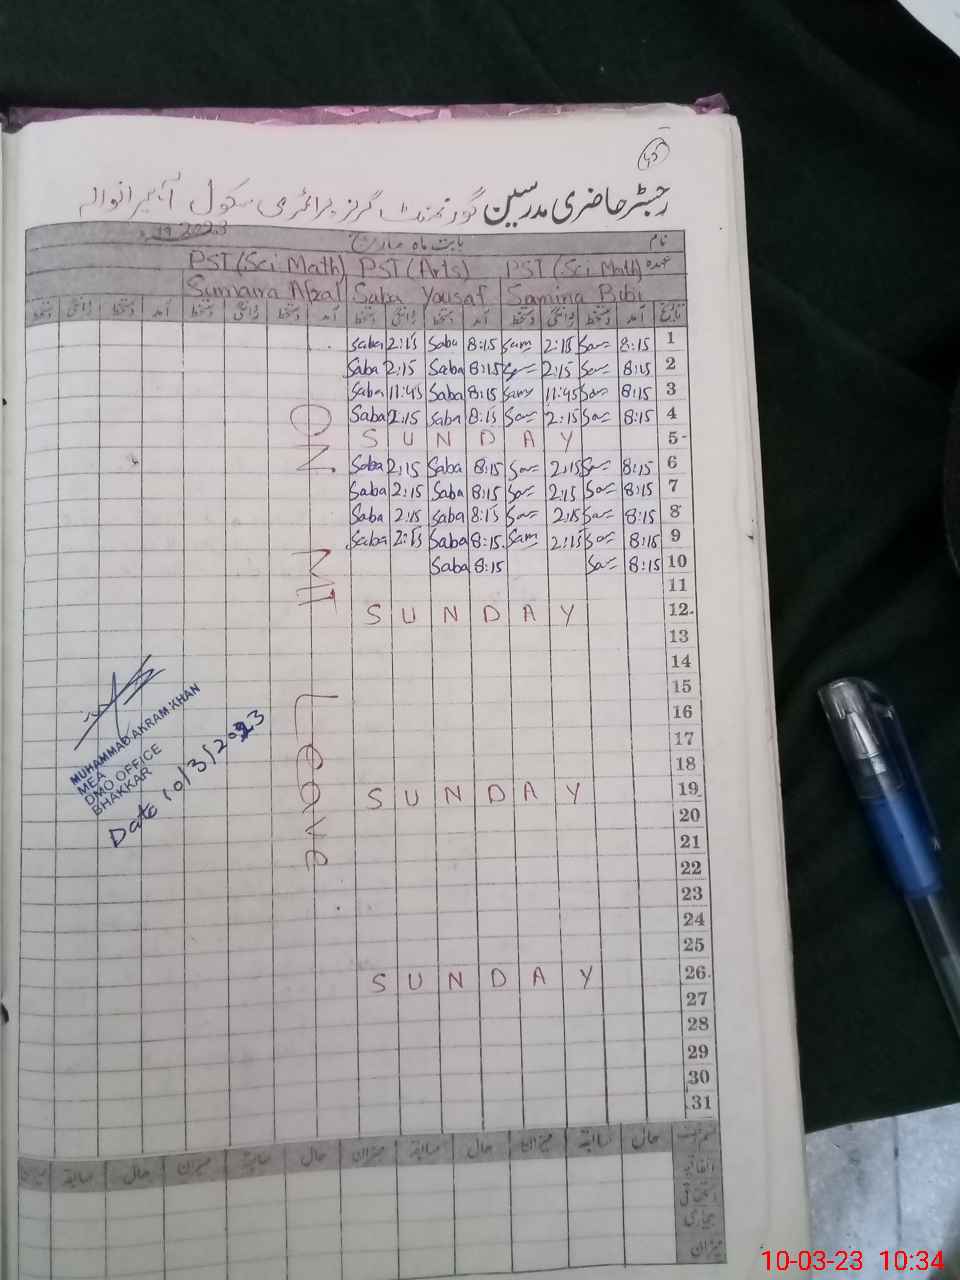 رجسٹر حاضری مدرسین گورنمنٹ گرلز پرائمری سکول
نام بابت ماہ مارچ 2023
عہدہ PST (Sci Math) PST (Arts) PST (Sci Math)
Samina Bibi Saba Yousaf Sumaira Afzal
تاریخ آمد دستخط روانگی دستخط آمد دستخط روانگی دستخط آمد دستخط روانگی دستخط آمد دستخط روانگی دستخط
Saba 2:15 Saba 8:15 Sam 2:15 8:15 1
Saba 2:15 Saba 8:15 2:15 8:15 2
Saba 11:45 Saba 8:15 Sam 11:45 8:15 3
Saba 2:15 Saba 8:15 2:15 8:15 4
SUNDAY 5
Saba 2:15 Saba 8:15 2:15 8:15 6
Saba 2:15 Saba 8:15 2:15 8:15 7
Saba 2:15 Saba 8:15 2:15 8:15 8
Saba 2:15 Saba 8:15 Sam 2:15 8:15 9
Saba 8:15 8:15 10
11
SUNDAY 12
13
14
15
16
17
18
SUNDAY 19
20
21
22
23
24
25
SUNDAY 26
27
28
29
30
31
ON
Leave
MUHAMMAD AKRAM KHAN
MEA
DMO OFFICE
BHAKKAR
Date 10/3/2023
حال سابقہ میزان حال سابقہ میزان حال سابقہ میزان حال سابقہ میزان
اتفاقیہ
بیماری
میزان
10-03-23 10:34